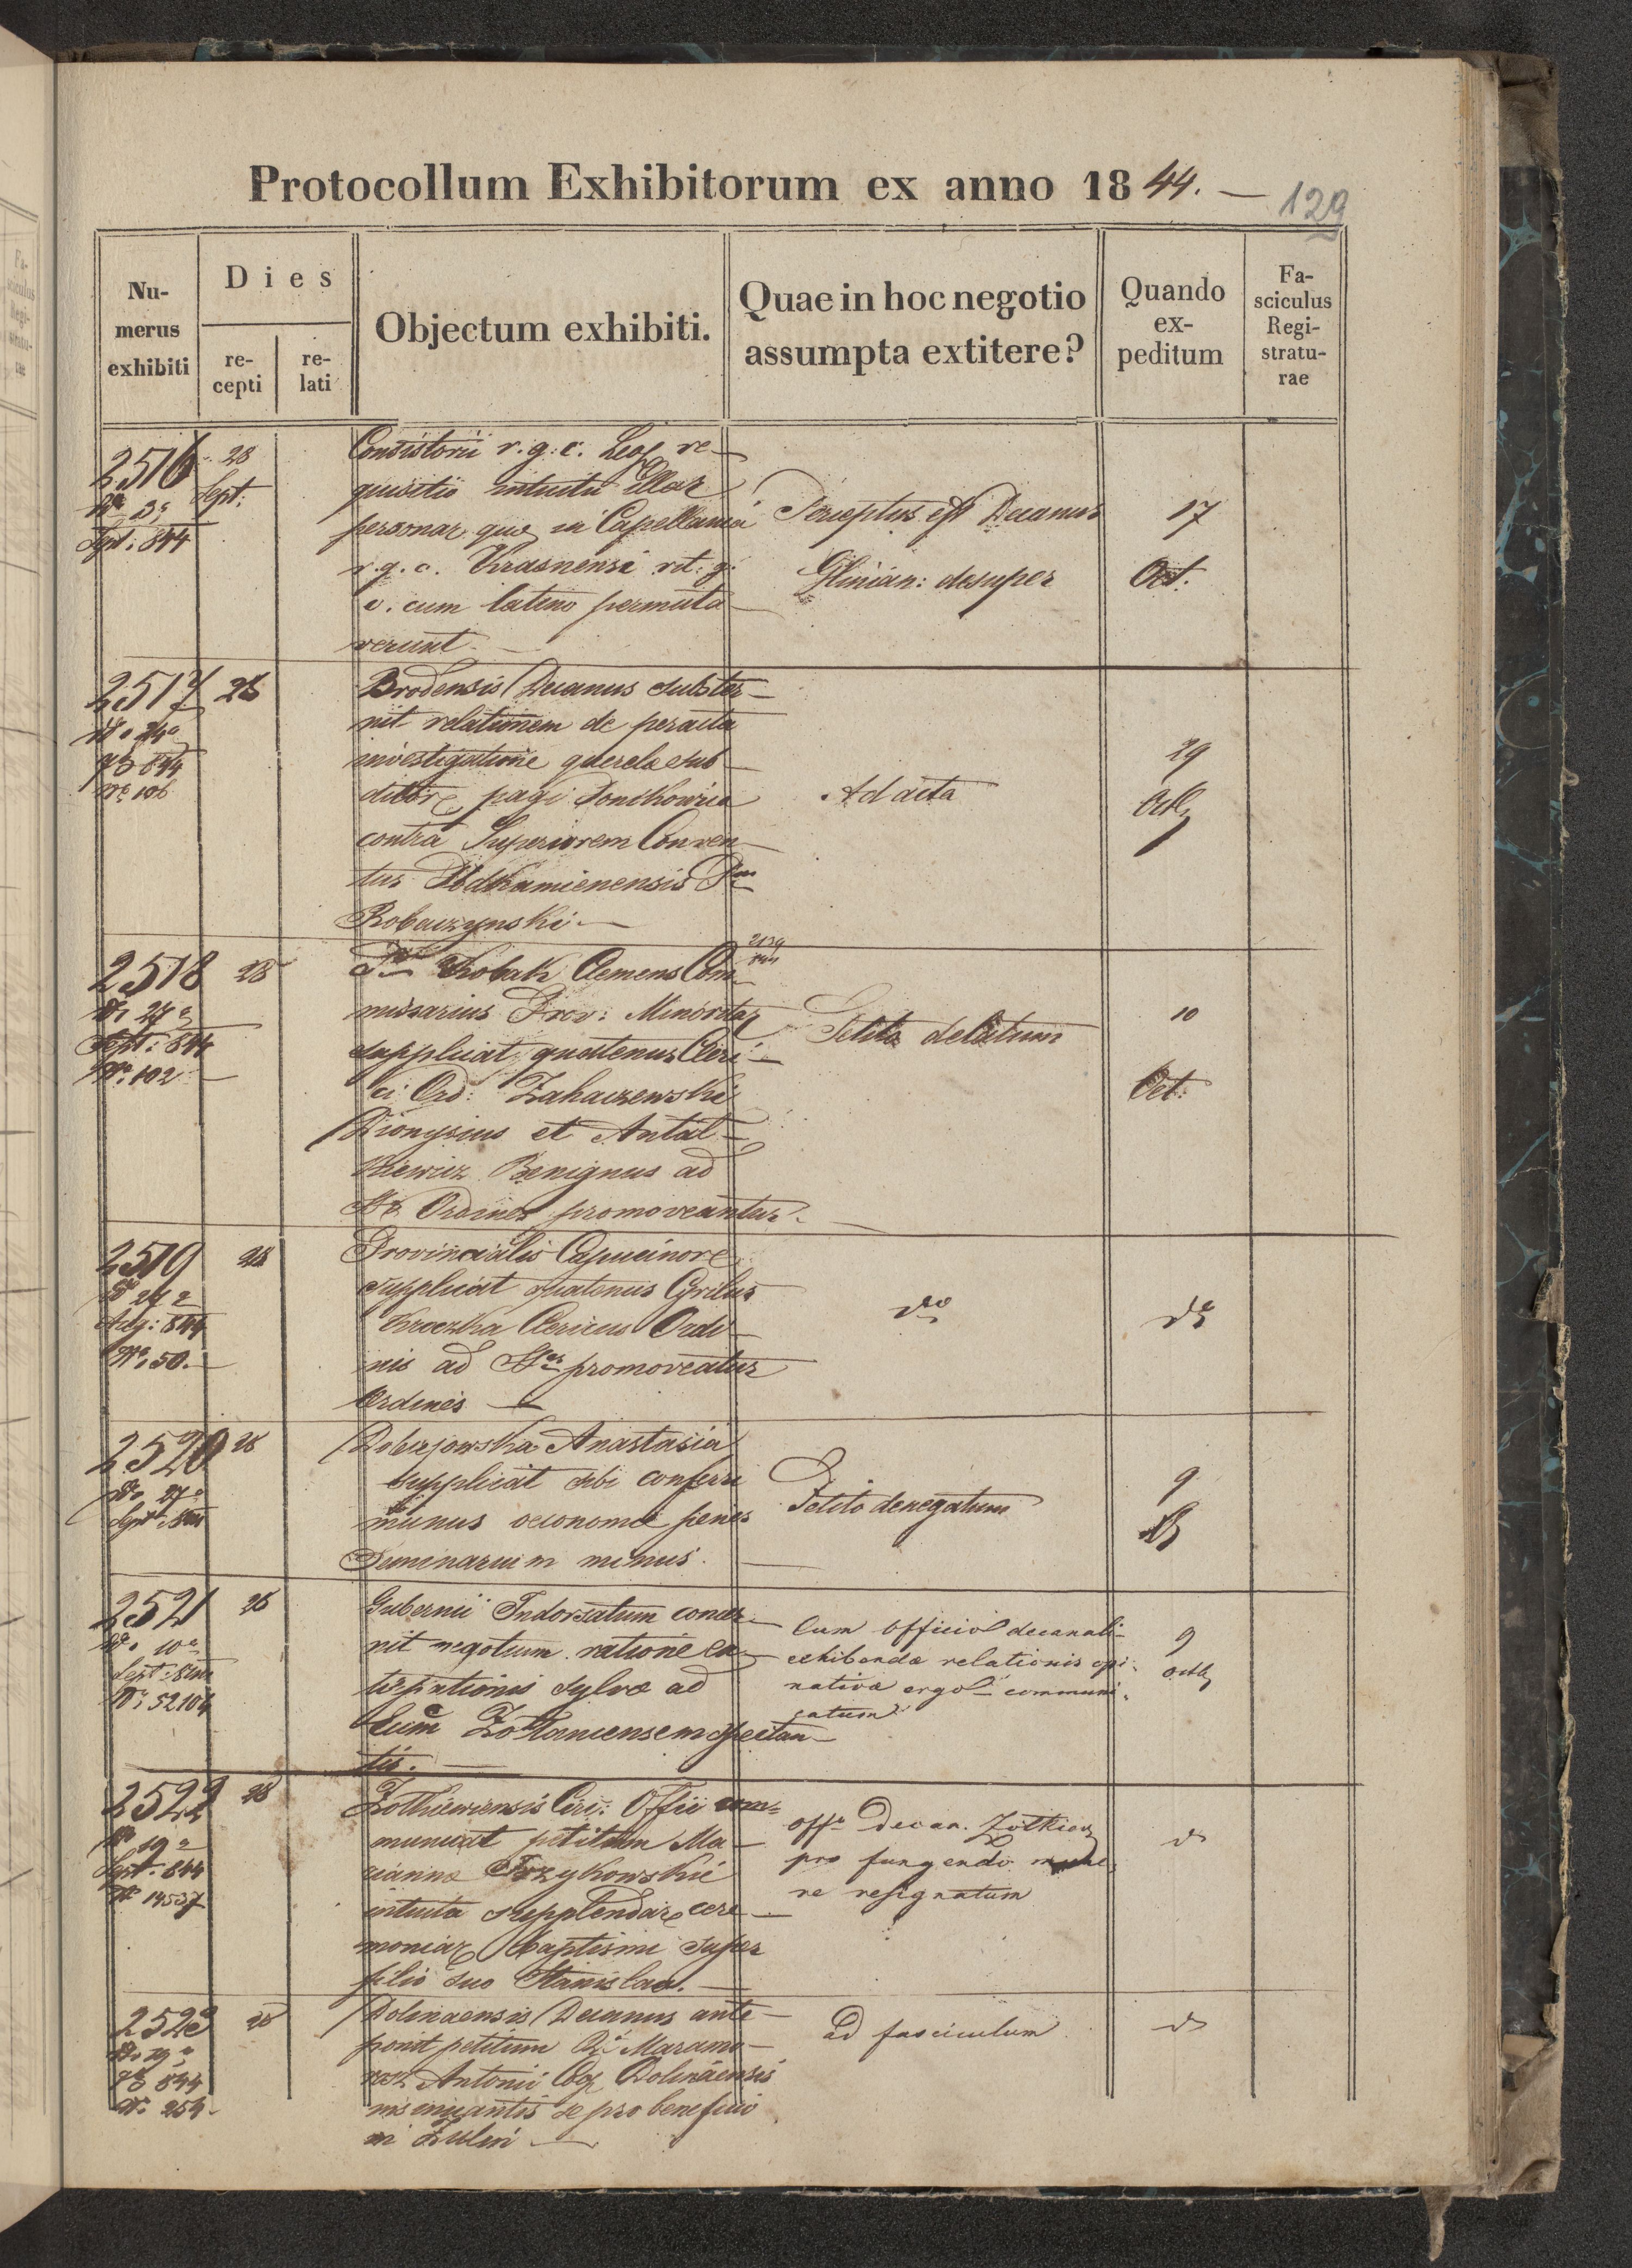 Protocollum Exhibitorum ex anno 1844. —
129
Nu-
merus
exhibiti
Dies
re-
cepti
re-
lati
Objectum exhibiti.
Quae in hoc negotio
assumpta extitere?
Quando
ex-
peditum
Fa-
sciculus
Regi-
stratu-
rae
2516
28
Sept:
Sept: 844
Consistorii r. g: c. Leop re-
quisitio intuitu illar
personar, que in Capellania
r. g. c. Krasnensi rit. g.
c. cum latino permuta
verunt —
est Decanus
Glinian: desuper
17
Oct:
2517
28
844
Nr 106
Brodensis Decanus subster-
nit relationem de peracta
investigatione querelae sub
ditor pagi Ponikowica
contra Superiorem Conven-
tus Podkamienensis
Robaczynski —
Ad acta
29
Oct
2518
28
Sept: 844
Nr. 102
Kobak Clemens Com
missarius Prov: Minorita
supplicat quatenus Cleri-
ci Ord: Zahaczewski
Dionysius et Antal-
kiewicz Benignus ad
Ordines promoveantur. —
2139
Petito delatum
10
Oct:
2519
28
844
Nr. 50. —
Provincialis Capucinor
supplicat quatenus Cyrilus
Kroczka Clericus Ordi
nis ad promoveatur
Ordines —
do
do
2520
28
Dobrzowska Anastasia
supplicat sibi conferri
munus oeconomae penes
Seminarium minus.
Petito denegatum
9
2521
28
Nr 52104
Gubernii Indorsatum concer-
nit negotium ratione ex-
tirpationis sylvae ad
Zoltaniensem spectan-
tis. —
Cum officio decanali
exhibenda relationis opi-
nativa ergo communi-
catum
9
Octb
2522
28
19
Sept: 844
Nr 14537
Zolkiewiensis Circ: Offii com=
municat petitum Ma-
rianna Trzykowski
intuitu supplendar cere-
moniar baptismi super
filio suo Stanislao. —
offo Decan. Zolkiew
pro fungendo mune
re resignatum
do
2523
28
844
Nr. 254
Dolinaensis Decanus ante-
ponit petitum Maramo-
rosz Antonii Dolinaensis
insinuantis se pro beneficio
in Zulin —
ad fasciculum
do